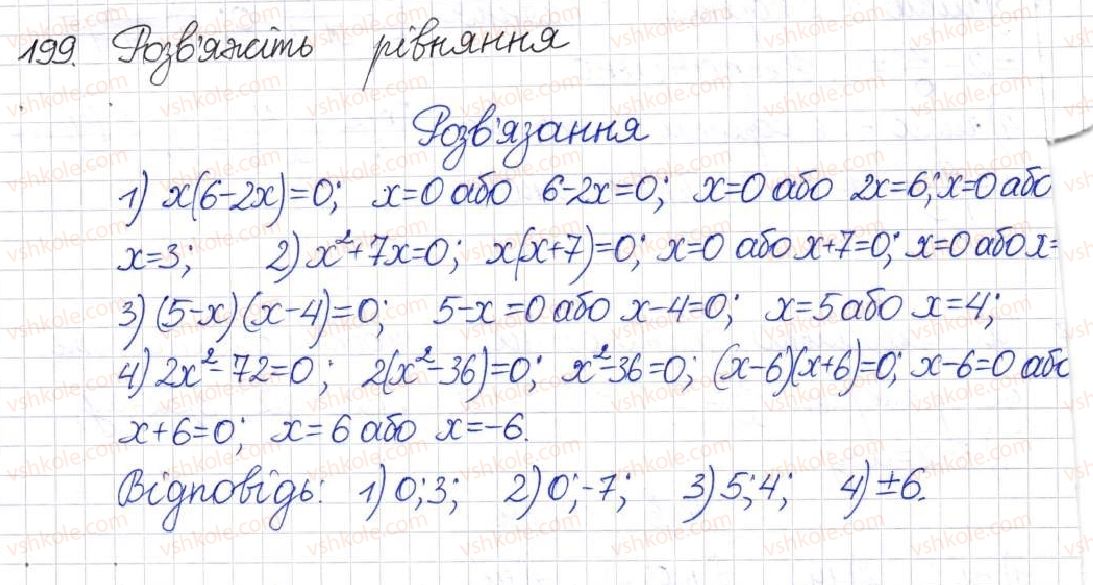 199. Розв'яжіть рівняння
Розв'язання
1) x(6-2x)=0; x=0 або 6-2x=0; x=0 або 2x=6; x=0 або
x=3; 2) x²+7x=0; x(x+7)=0; x=0 або x+7=0; x=0 або x=
3) (5-x)(x-4)=0; 5-x=0 або x-4=0; x=5 або x=4;
4) 2x²-72=0; 2(x²-36)=0; x²-36=0; (x-6)(x+6)=0; x-6=0 або
x+6=0; x=6 або x=-6.
Відповідь: 1) 0; 3; 2) 0; -7; 3) 5; 4; 4) ±6.
vshkole.com